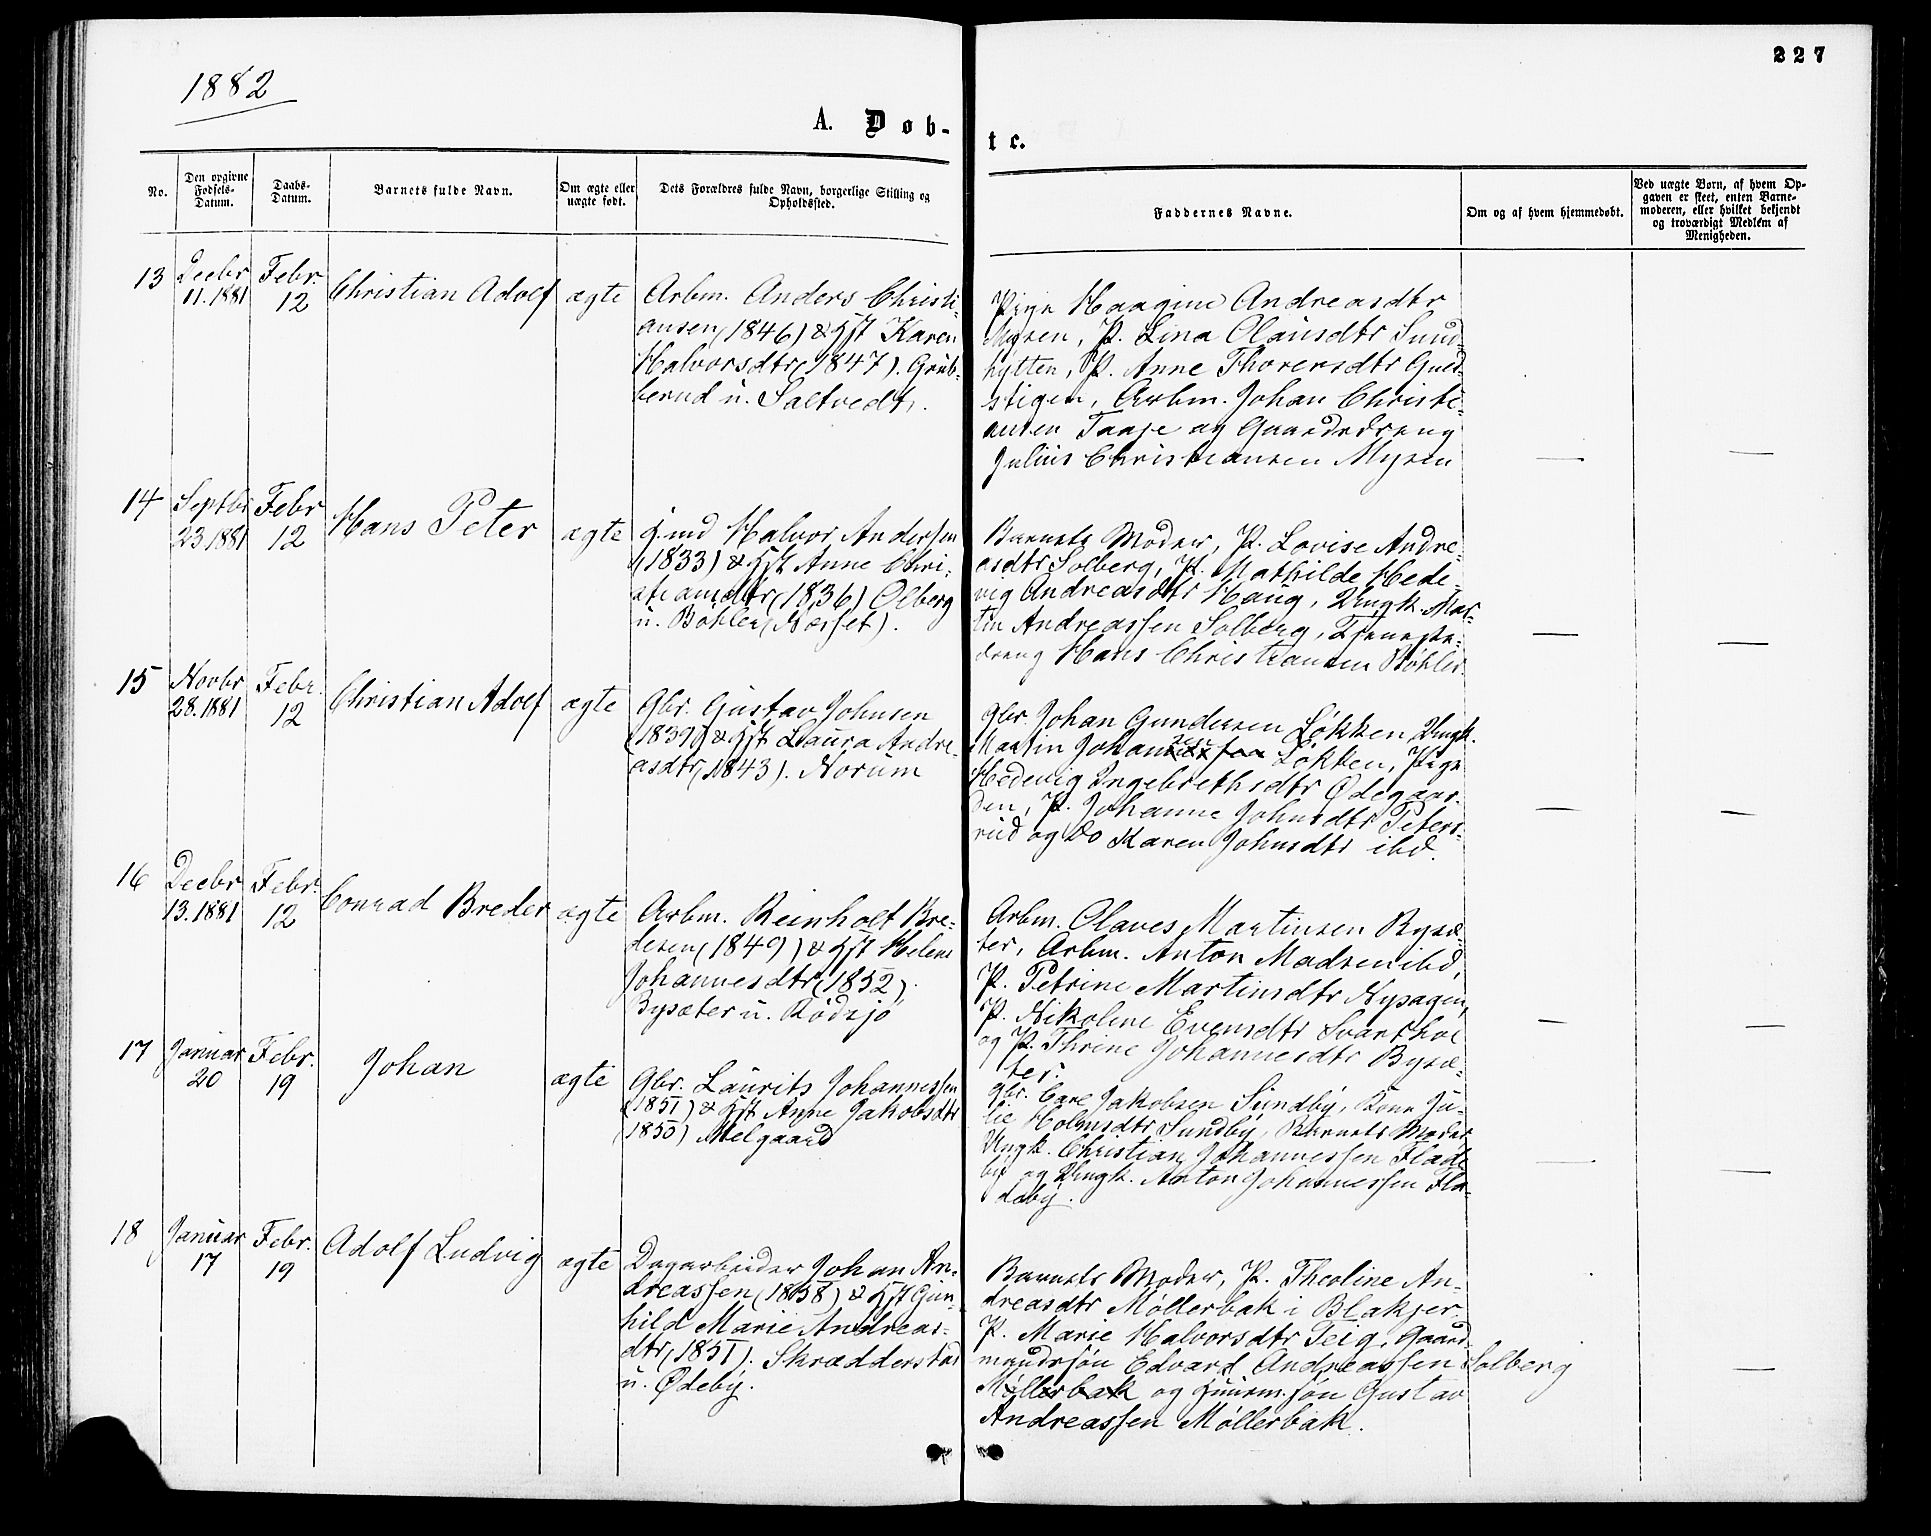 227
1882
A. Døb-
te.
No.
Den opgivne
Fødsels-
Datum.
Daabs-
Datum.
Barnets fulde Navn.
Om ægte eller
uægte født.
Dets Forældres fulde Navn, borgerlige Stilling og
Opholdssted.
Faddernes Navne.
Om og af hvem hjemmedøbt.
Ved uægte Børn, af hvem Op-
gaven er skeet, enten Barne-
moderen, eller hvilket bekjendt
og troværdigt Medlem af
Menigheden.
13
Decbr
11. 1881
Febr.
12
Christian Adolf
ægte
Arbm. Anders Christi-
ansen (1846) & Hst Karen
Halvorsdtr (1847). Grüb-
berud u. Saltvedt.
Pige Haagine Andreasdtr
Mysen, P. Lina Olausdtr Sund-
hytten, P. Anne Thoreersdtr
stigen, Arbm. Johan Christi-
ansen Taaje og Gaardsdreng
Julius Christiansen Mysen
14
Septbr
23 1881
Febr
12
Hans Peter
ægte
Hmd Halvor Andersen
(1833) & Hst Anne Chri-
stiansdtr (1836) Olberg
u. Bøhler (Næsset).
Barnets Moder, P. Lovise Andre-
asdtr Solberg, P. Mathilde Hede-
vig Andreasdtr Haug, Ungk. Mar-
tin Andreassen Solberg, Tjeneste-
dreng Hans Christiansen Bøhler.
15
Novbr
28. 1881
Febr.
12
Christian Adolf
ægte
Gbr. Gustav Johnsen
(1839) & Hst Laura Andre-
asdtr (1843). Norum
Gbr. Johan Gundersen Løkken, Ungk.
Martin Johan Løkken, Pige
Hedevig Ingebrethsdtr Ødegaar-
den, P. Johanne Johnsdtr Peters-
rud og Do Karen Johnsdtr ibd.
16
Decbr
13. 1881
Febr.
12
Conrad Breder
ægte
Arbm. Reinholt Bre-
desen (1849) & Hst Helene
Johannesdtr (1852).
Bysæter u. Rødsjø
Arbm. Olaves Martinsen Bysæ-
ter, Arbm. Anton Madsen ibd,
P. Petrine Martinsdtr Nysagen,
P. Nikoline Evensdtr Svarthol
og P. Thrine Johannesdtr Bysæ-
ter.
17
Januar
20
Febr.
19
Johan
ægte
Gbr. Laurits Johannessen
(1851) & Hst Anne Jakobsdtr
(1850) Melgaard
Gbr. Carl Jakobsen Sundby, Kone Ju-
lie Holmsdtr Sundby, Barnets Moder,
Ungk. Christian Johannessen Flade
by og Ungk. Anton Johannessen Fla-
deby.
18
Januar
17
Febr.
19
Adolf Ludvig
ægte
Dagarbeider Johan An-
dreassen (1858) & Hst Gun-
hild Marie Andreas-
dtr (1851). Skrædderstad
u. Ødeby.
Barnets Moder, P. Theoline An-
dreasdtr Møllerbak i Blakjer
P. Marie Halvorsdtr Teig, Gaard
mandssøn Edvard Andreassen Solberg
Møllerbak og Huusm.søn Gustav
Andreassen Møllerbak.